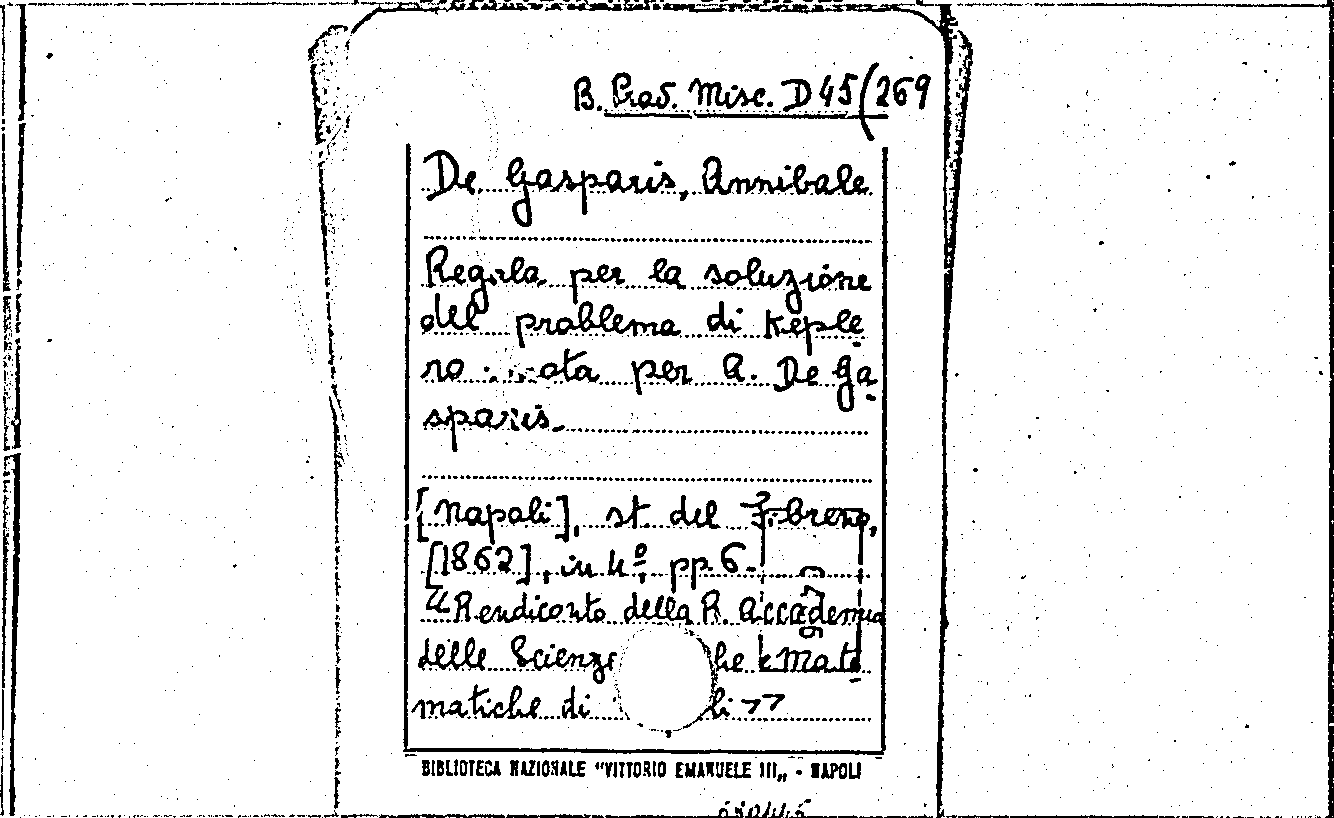 B. Prov. Misc. D 45(269
De Gasparis, Annibale
Regola per la soluzione
del problema di Keple-
ro per A. De Ga-
sparis.
[Napoli], st. del Fibreno,
[1862], in 4º, pp. 6.
"Rendiconto della R. Accademia
delle Scienze e Mate-
matiche di
BIBLIOTECA NAZIONALE "VITTORIO EMANUELE III„ - NAPOLI